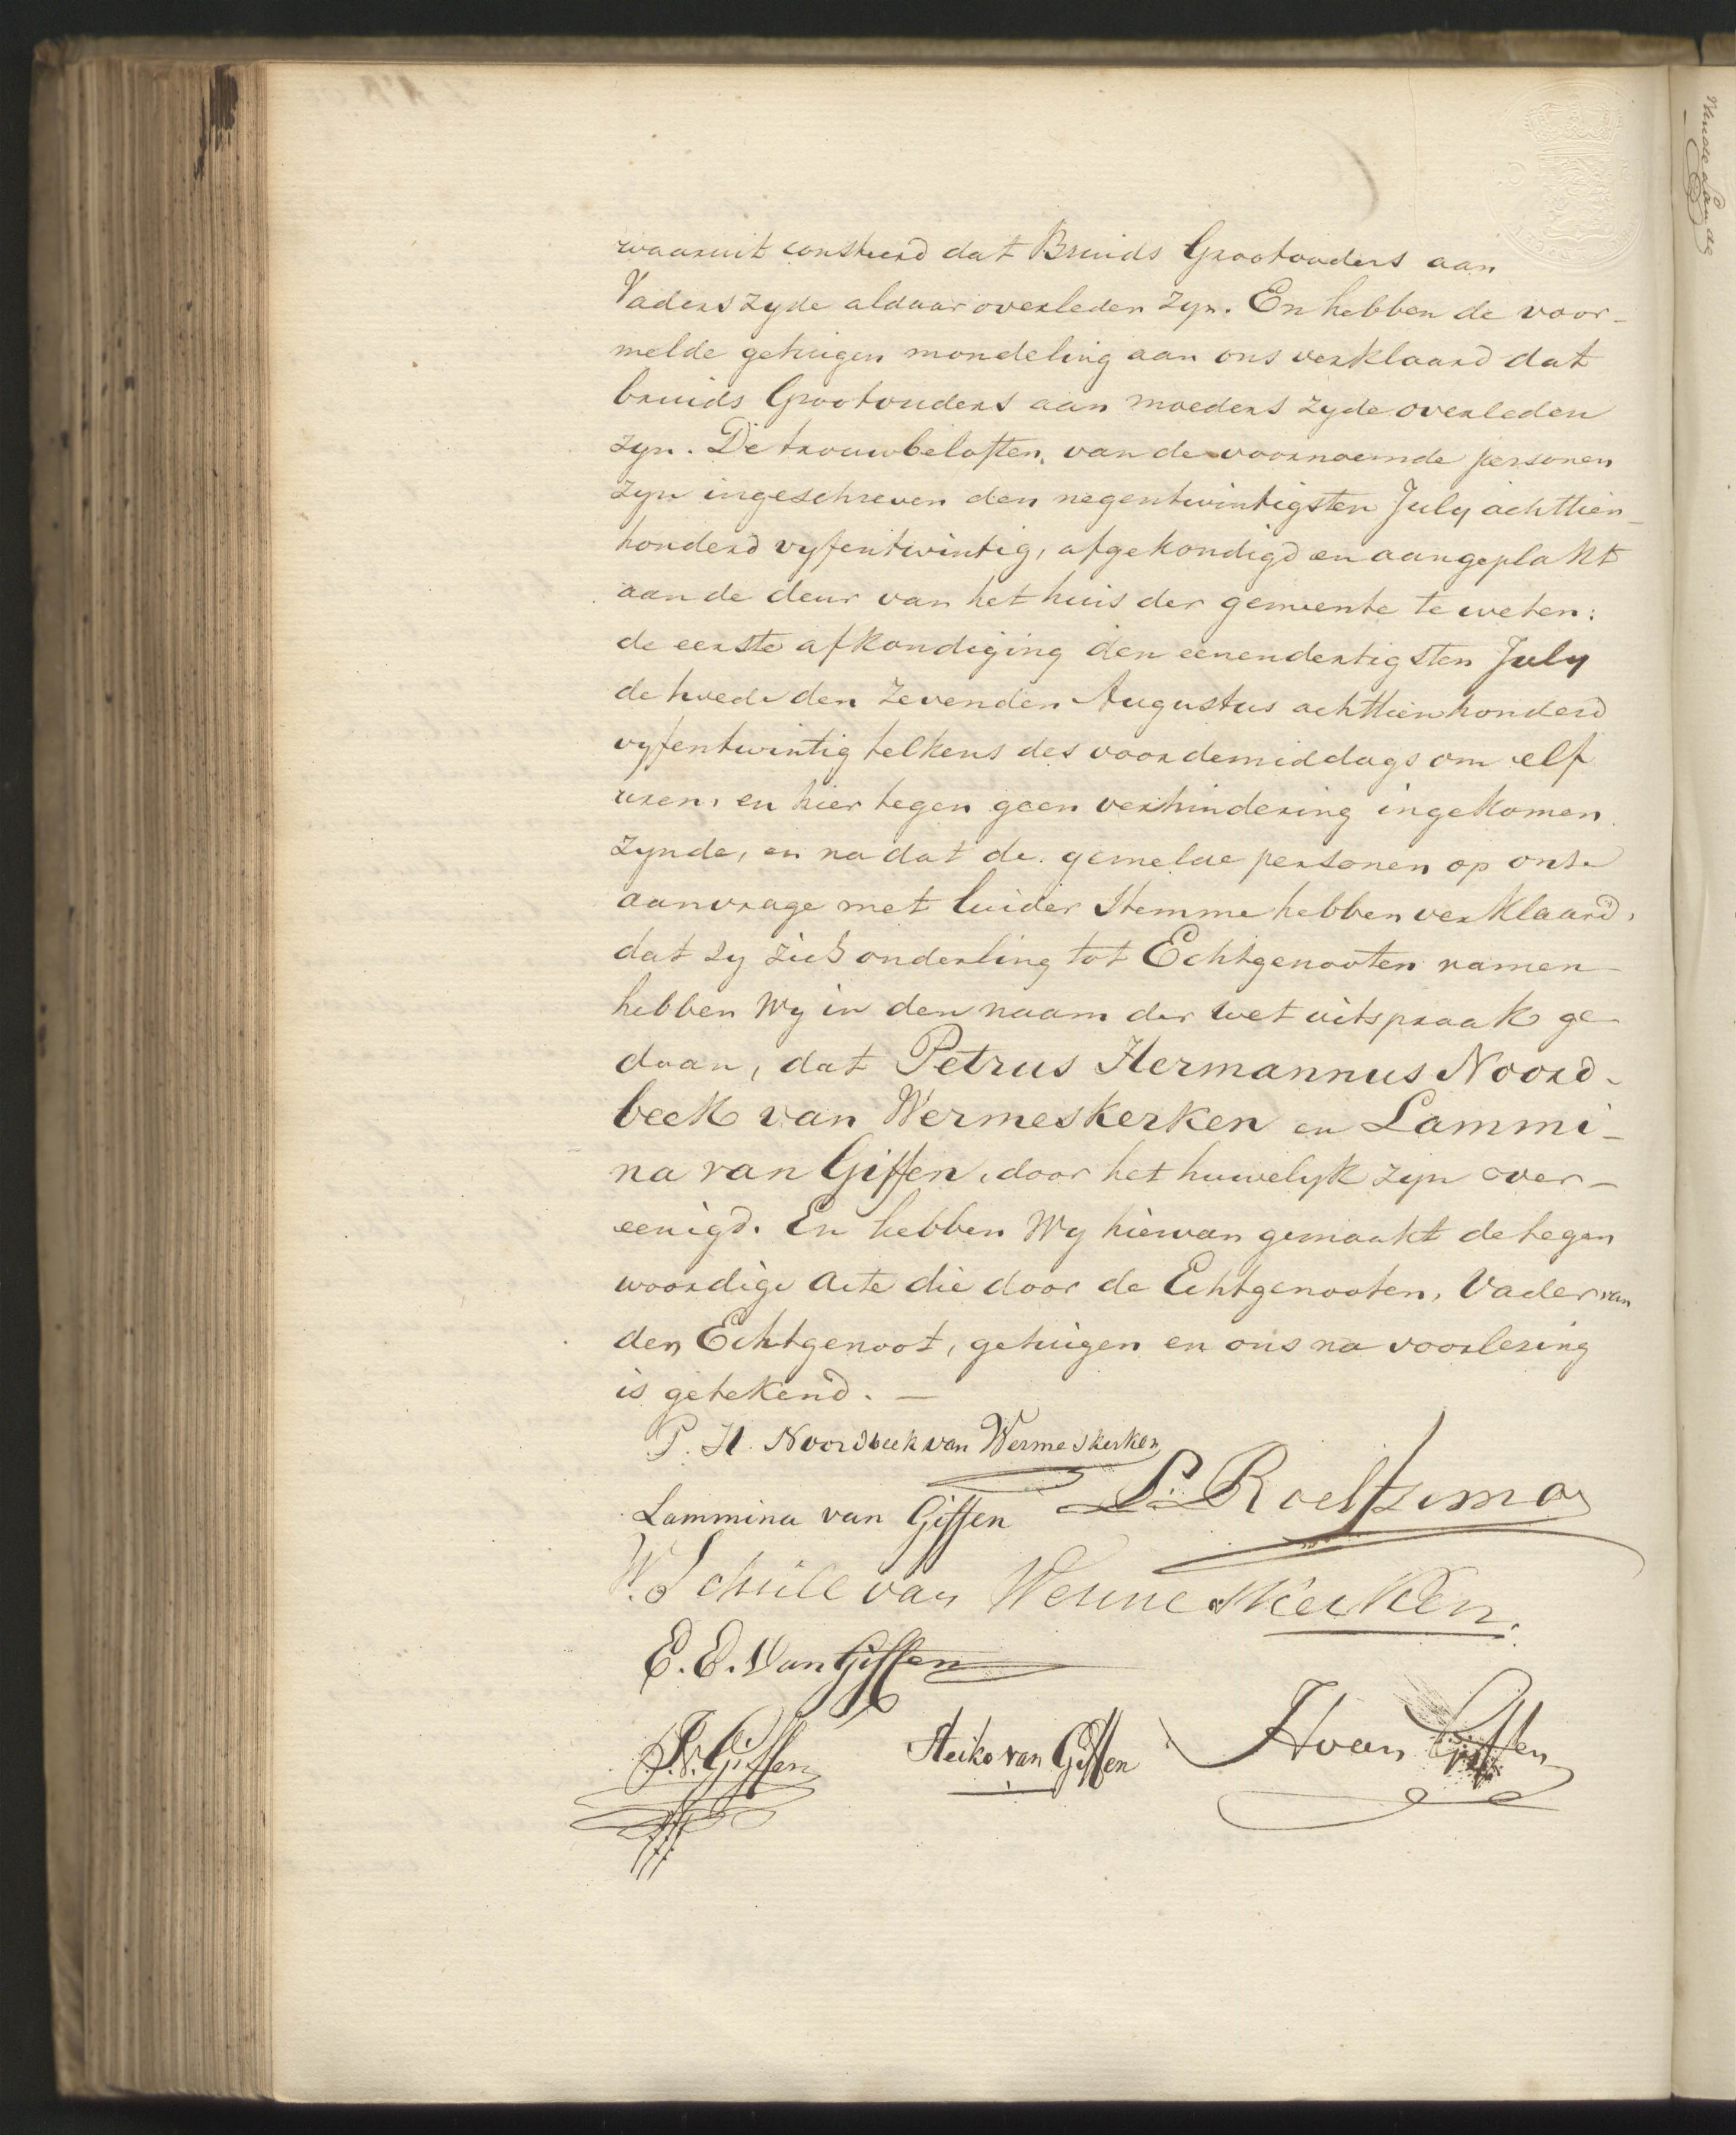 waaruit consteerd dat Bruids Grootouders aan
Vaders zyde aldaar overleden zyn. En hebben de voor-
melde getuigen mondeling aan ons verklaard dat
bruids Grootouders aan moeders zyde overleden
zyn. De trouwbeloften, van de voornoemde personen
zyn ingeschreven den negentwintigsten July achttien-
honderd vyfentwintig, afgekondigd en aangeplakt
aan de deur van het huis der gemeente te weten:
de eerste afkondiging den eenendertigsten July
de tweede den zevenden Augustus achttienhonderd
vyfentwintig telkens des voordemiddags om elf
uren, en hier tegen geen verhindering ingekomen
zynde, en nadat de gemelde personen op onse
aanvrage met luider Stemme hebben verklaard,
dat zy zich onderling tot Echtgenooten namen
hebben Wy in den naam der wet uitspraak ge-
daan, dat Petrus Hermannus Noord-
beek van Wermeskerken en Lammi-
na van Giffen, door het huwelyk zyn over-
eenigd. En hebben Wy hiervan gemaakt de tegen
woordige acte die door de Echtgenooten, Vader van
den Echtgenoot, getuigen en ons na voorlezing
is getekend. —
P. H. Noordbeek van Wermeskerken
L. Roeltsema
Lammina van Giffen
W. Schuile van Wermeskerken.
E. E. Van Giffen
J. v. Giffen Heiko van Giffen H van Giffen